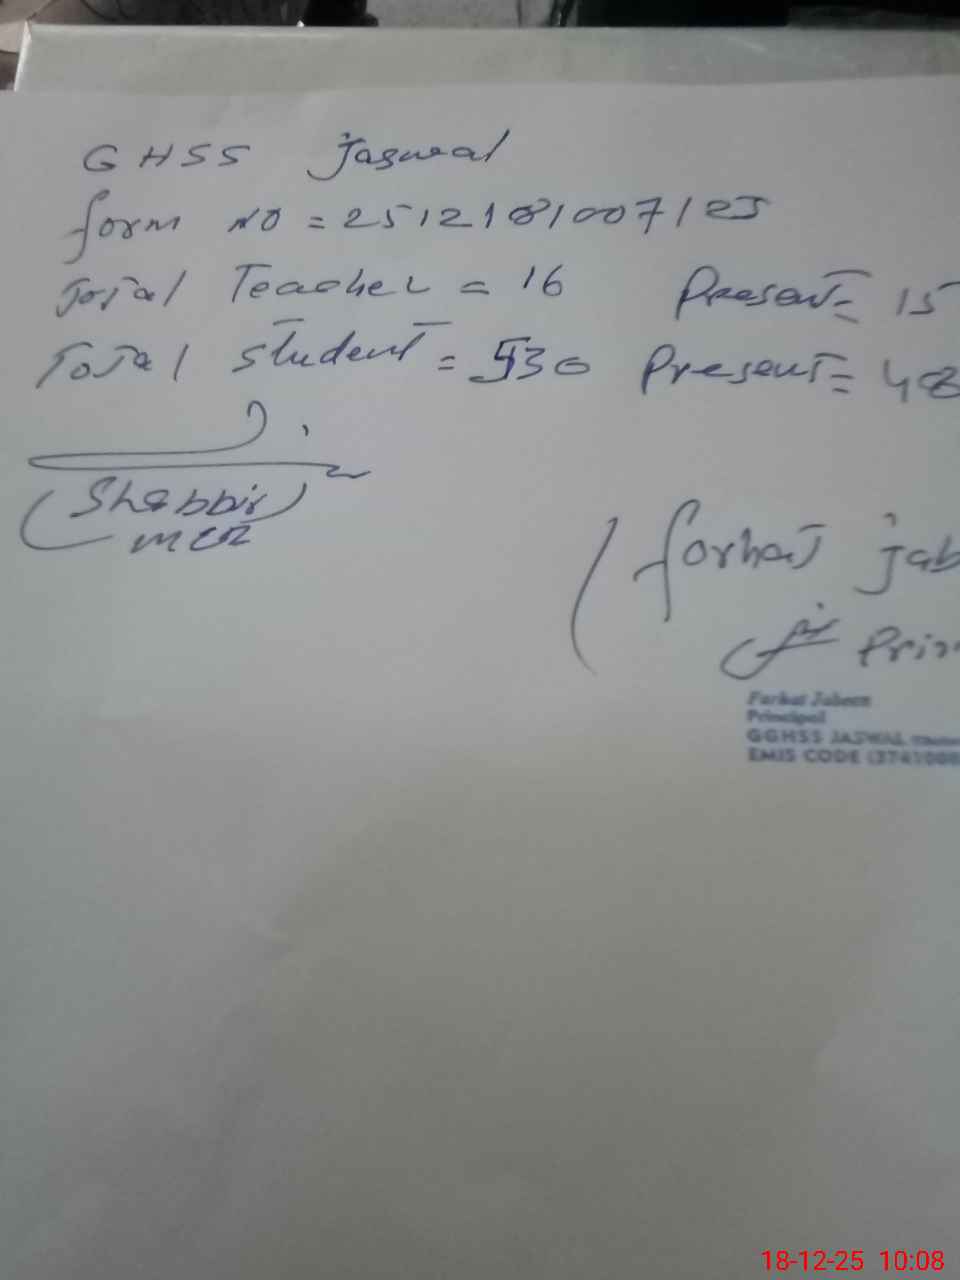 GHSS Jaswal
form NO = 2512181007123
Total Teacher = 16 Present = 15
Total student = 530 Present = 48
(Shabbir)
MEA
(forhat jab
Prin
Farhat Jabeen
Principal
GGHSS JASWAL
EMIS CODE (3741008
18-12-25 10:08